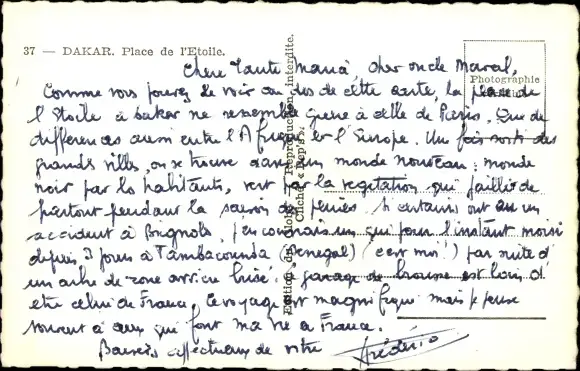 37 — DAKAR. Place de l'Etoile.
Chère Tante Maria, cher oncle Marcel,
Photographie
Comme vous pouvez le voir au dos de cette carte, la place de
l'Etoile à Dakar ne ressemble guère à celle de Paris. Que de
différences aussi entre l'Afrique et l'Europe. Un fois sorti des
grands villes, on se trouve dans un monde nouveau: monde
noir par les habitants, vert par la végétation qui jaillit de
partout pendant la saison des pluies. Si certains ont eu un
accident à Brignols, j'en connais un qui pour l'instant moisi
depuis 3 jours à Tambacounda (Senegal) (c'est moi!) par suite d'
un arbre de roue arrière brisé. Le garage de brousse est loin d'
etre celui de France. Le voyage est magnifique mais je pense
souvent à ceux qui font ma vie en France.
Baisers affectueux de votre Frédéric
Edition du Globe — Reproduction interdite.
Cliché « Rep's »